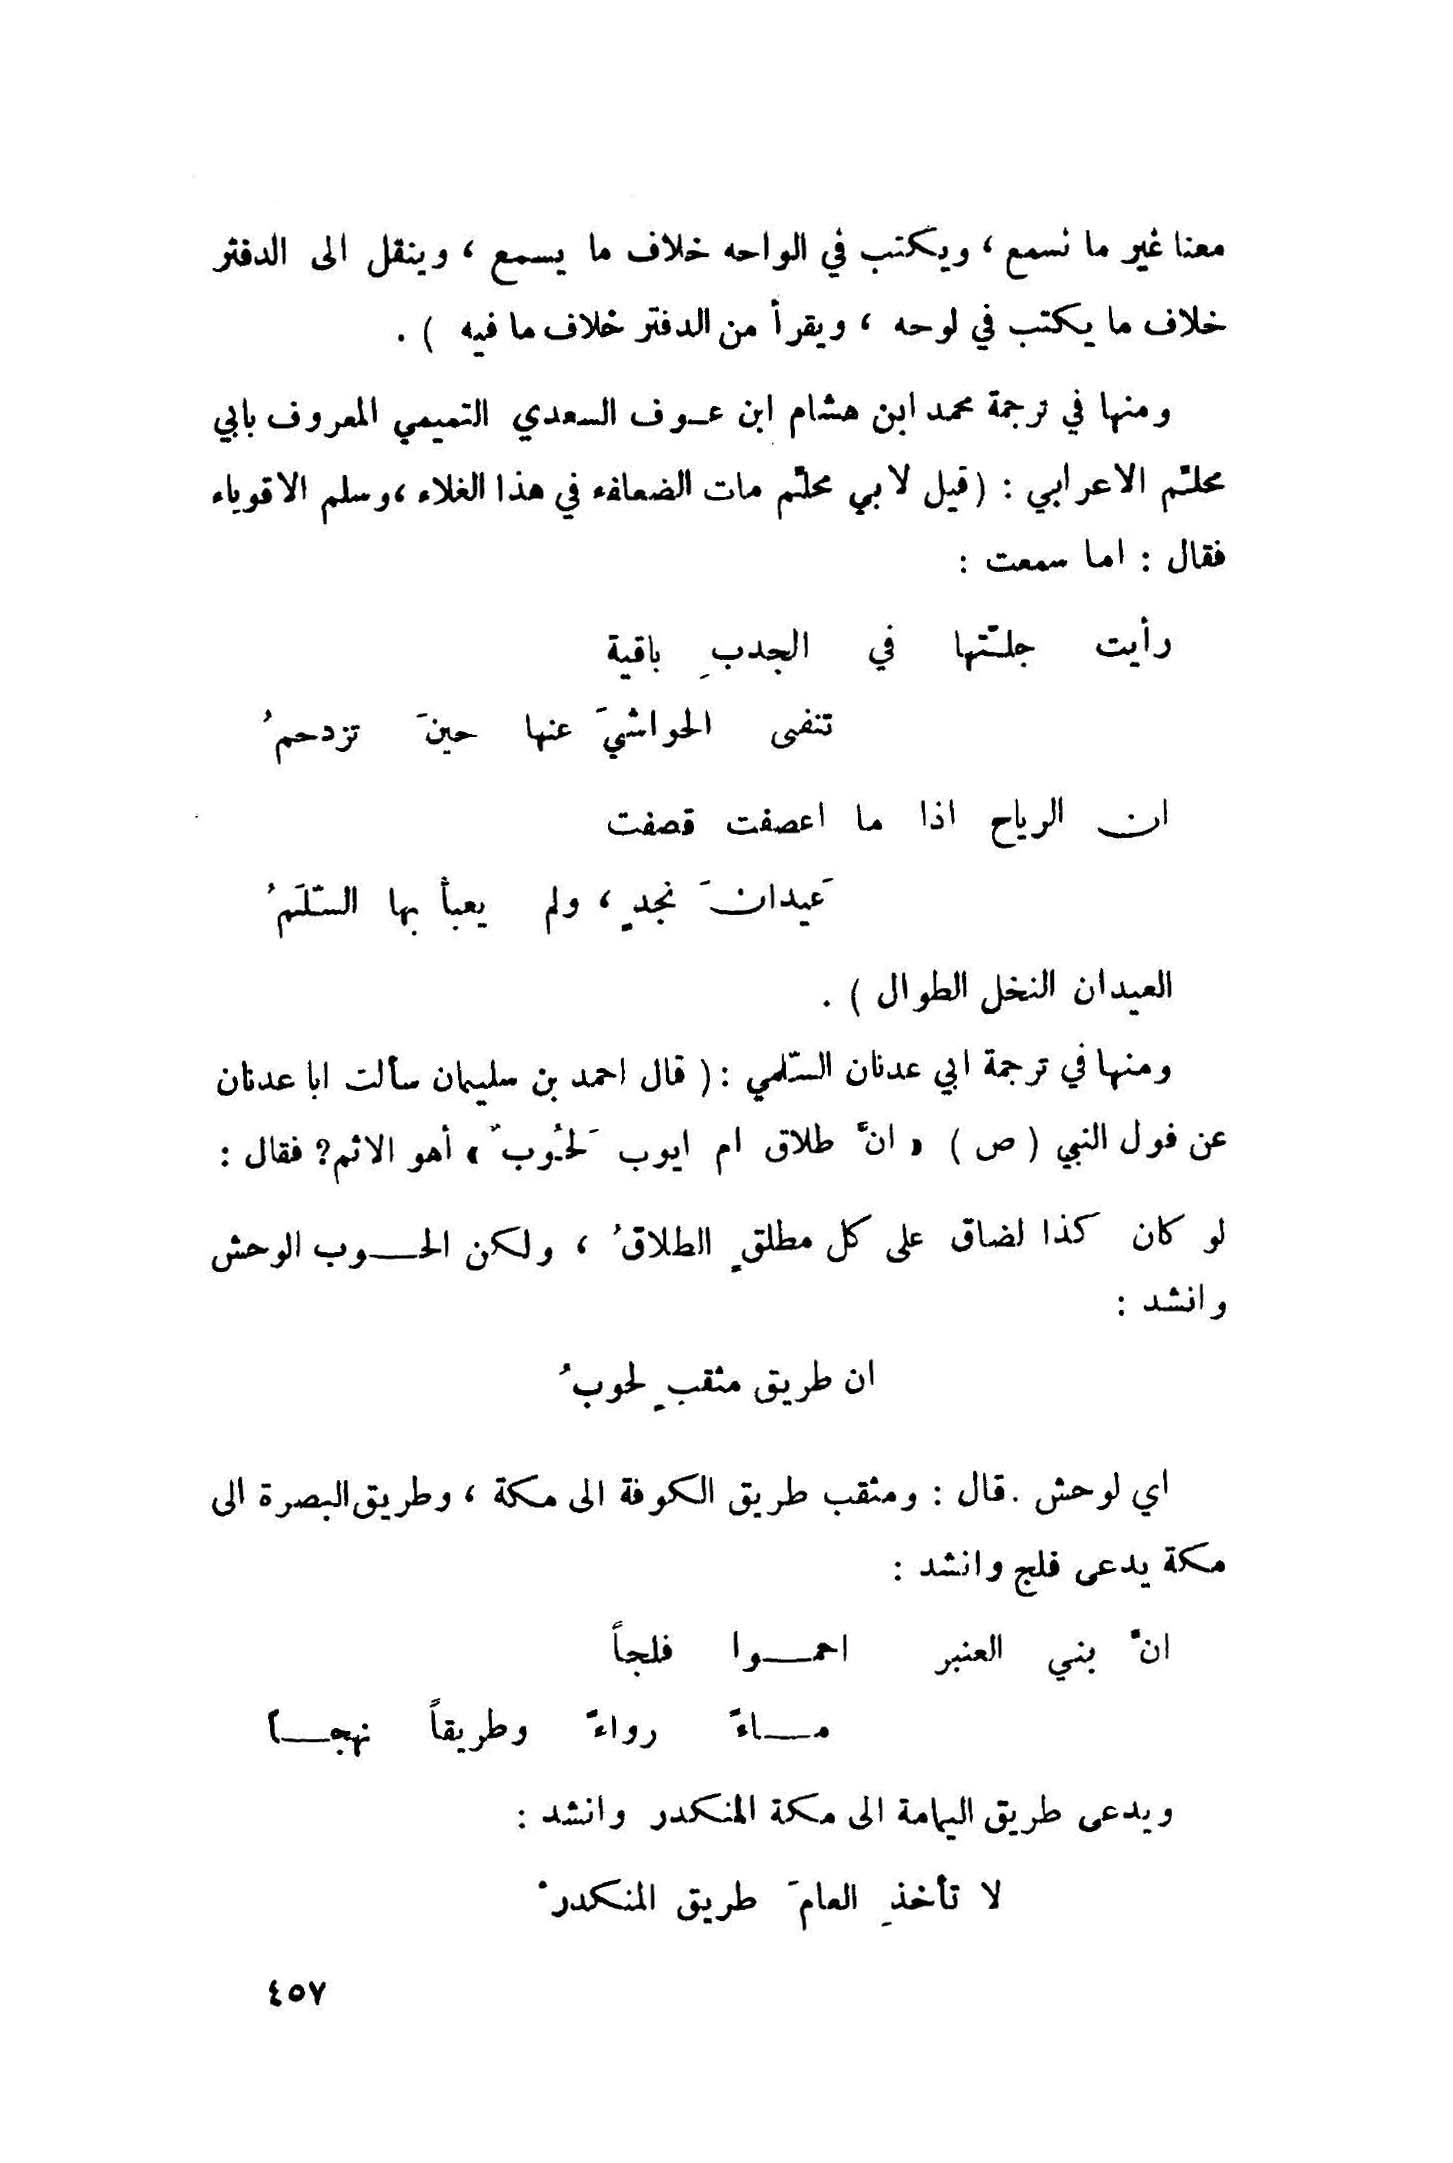 معنا غير ما نسمع ، ويكتب في الواحه خلاف ما يسمع ، وينقل الى الدفتر
خلاف ما يكتب في لوحه ، ويقرأ من الدفتر خلاف ما فيه ) .
ومنها في ترجمة محمد ابن هشام ابن عوف السعدي التميمي المعروف بابي
محلّم الاعرابي : ( قيل لابي محلّم مات الضعافء في هذا الغلاء ، وسلم الاقوياء
فقال : اما سمعت :
رأيت جلّتها في الجدبِ باقية
تنفى الحواشيَ عنها حينَ تزدحمُ
ان الرياح اذا ما اعصفت قصفت
عَيدانَ نجدٍ ، ولم يعبأ بها السّلَمُ
العيدان النخل الطوال ) .
ومنها في ترجمة ابي عدنان السّلمي : ( قال احمد بن سليمان سألت ابا عدنان
عن فول النبي ( ص ) « انّ طلاق ام ايوب لَحُوبٌ » أهو الاثم ؟ فقال :
لو كان كذا لضاق على كل مطلقٍ الطلاقُ ، ولكن الحوب الوحش
وانشد :
ان طريق مثقبٍ لحوبُ
اي لوحش . قال : ومثقب طريق الكوفة الى مكة ، وطريق البصرة الى
مكة يدعى فلج وانشد :
انّ بني العنبر احموا فلجاً
ماءً رواءً وطريقاً نهجا
ويدعى طريق اليمامة الى مكة المنكدر وانشد :
لا تأخذِ العامَ طريق المنكدرْ
٤٥٧